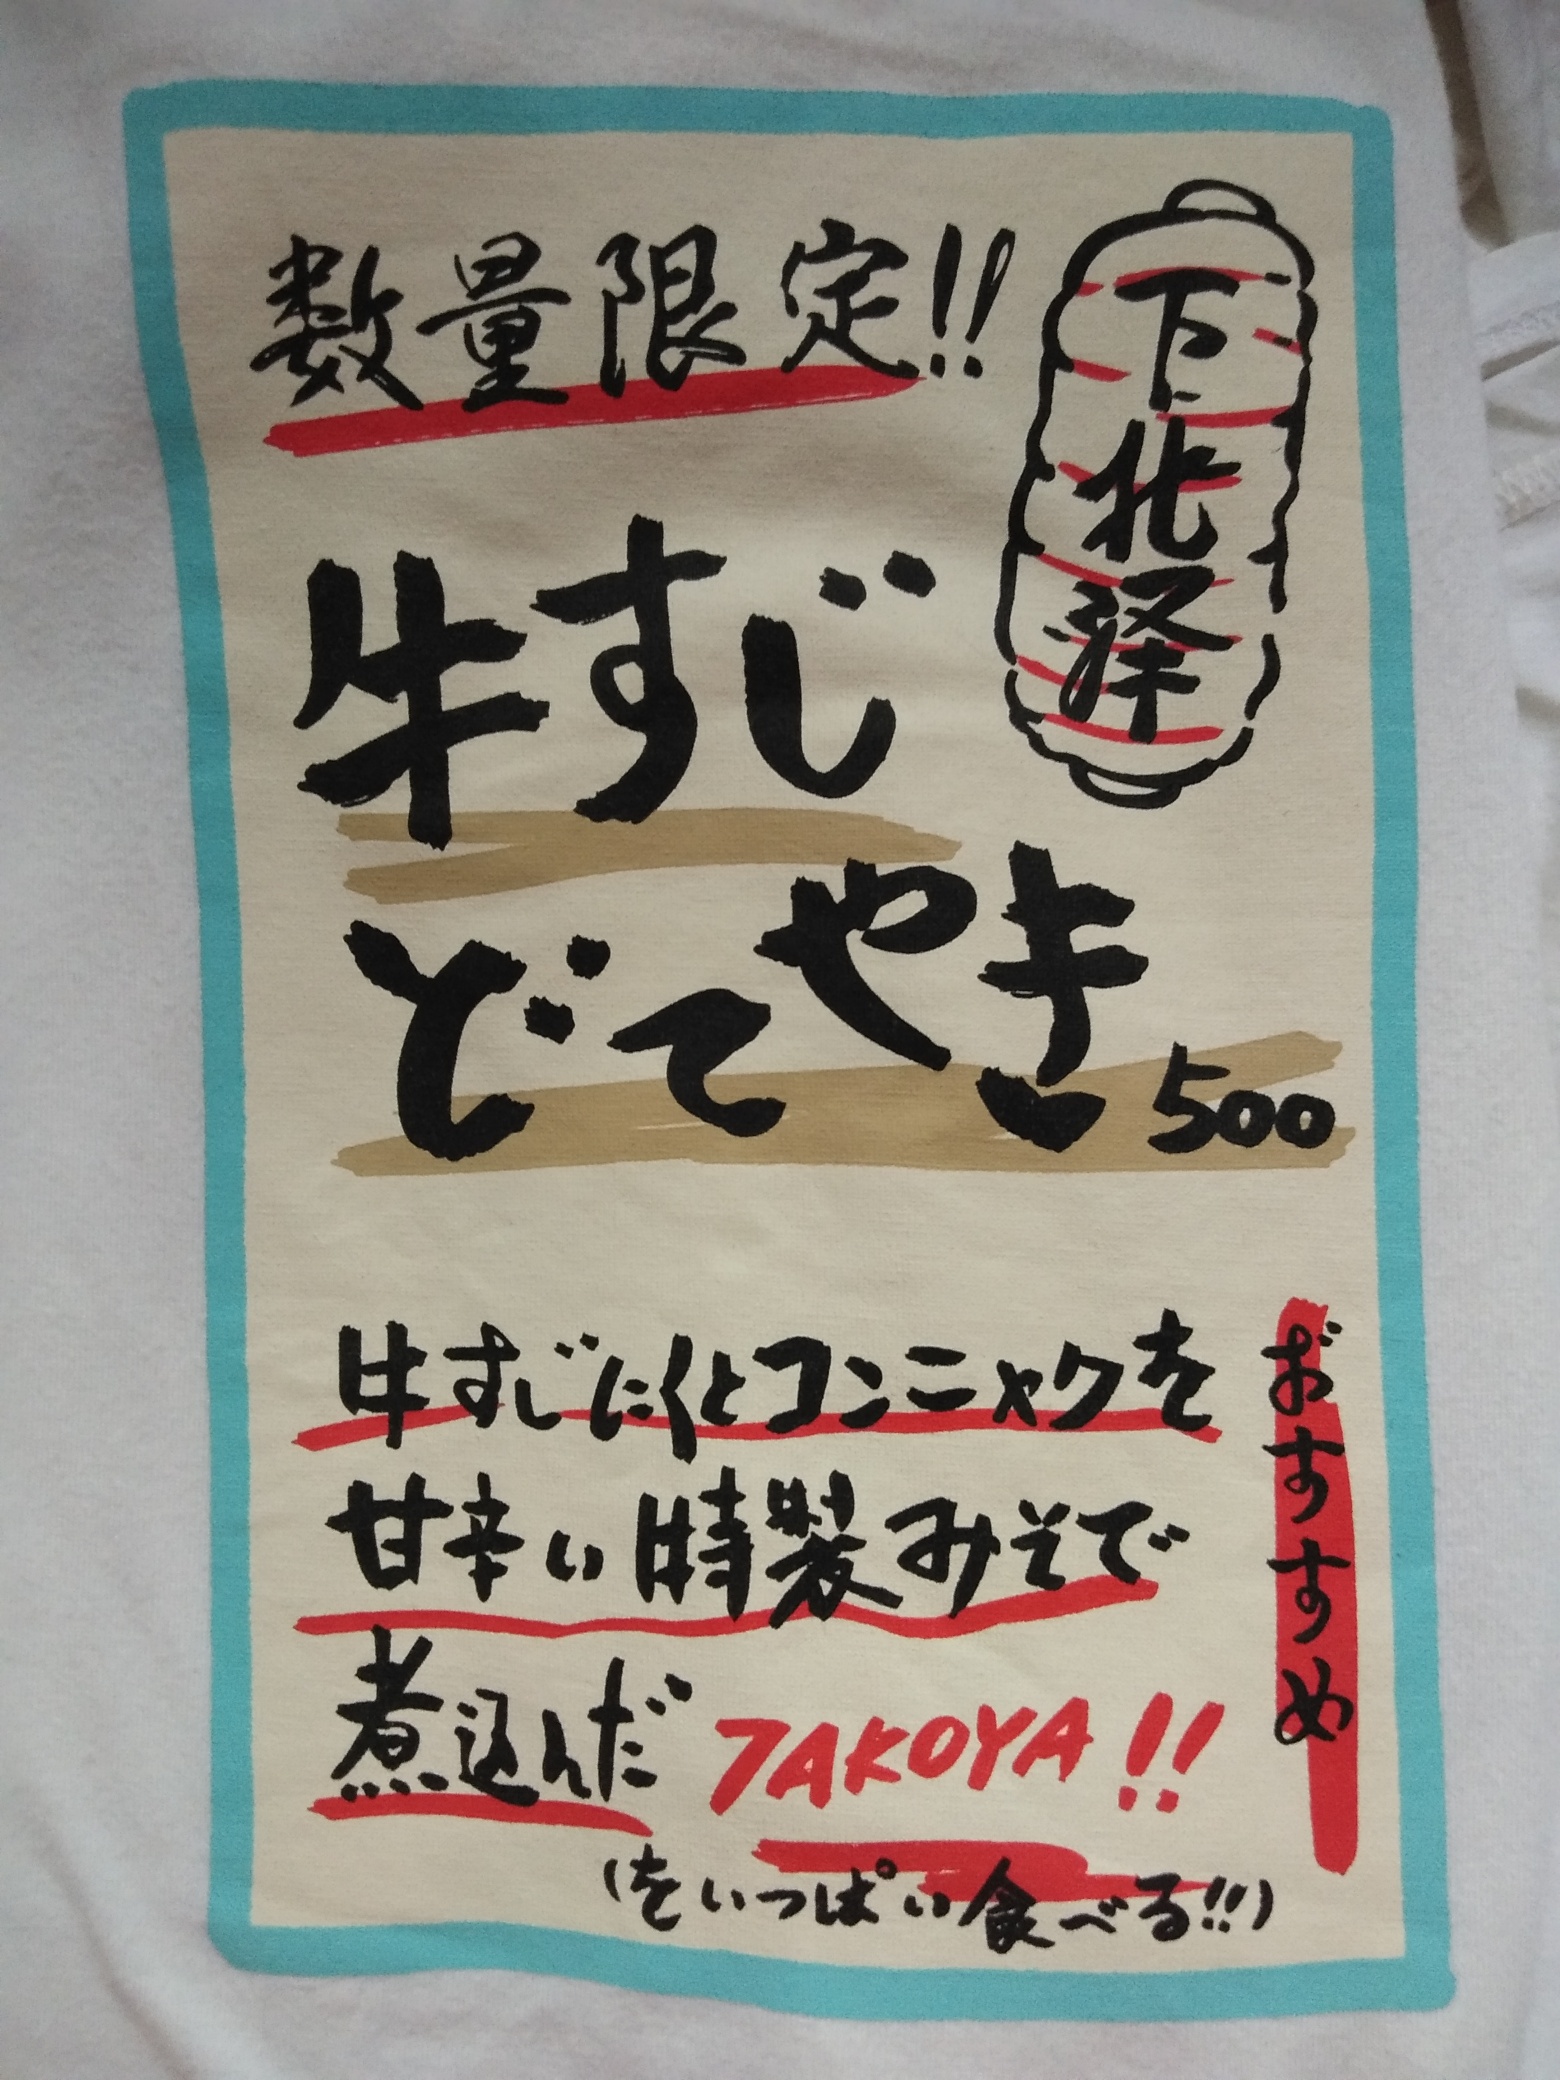 数量限定!!
下北澤
牛すじ
どてやき
500
牛すじにくとコンニャクを
甘辛い特製みそで
煮込んだ TAKOYA!!
(をいっぱい食べる!!)
おすすめ